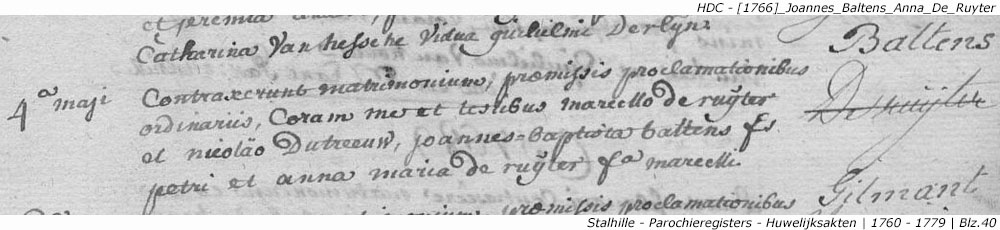 HDC - [1766]_Joannes_Baltens_Anna_De_Ruyter
et jeremia
Catharina Van hessche Vidua guilielmi Derlyn.
Baltens
4ª maji
Contraxerunt matrimonium, præmissis proclamationibus
ordinariis, Coram me et testibus marcello de ruÿter
De ruÿter
et nicoläo Dutreeuw, joannes-baptista baltens fs
petri et anna maria de ruÿter fª marcelli.
Gilmant
præmissis proclamationibus
Stalhille - Parochieregisters - Huwelijksakten | 1760 - 1779 | Blz.40